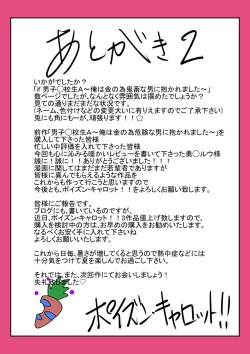 あとがき2
いかがでしたか?
「if 男子◯校生A～俺は金の為鬼畜な男に抱かれました～」
数ページでしたが、なんとなく雰囲気は掴めたでしょうか?
見ての通りまだまだな状況です。
(ネーム、色付けなどの変更大いに有りえますのでご了承下さい)
兎にも角にも一が、頑張ります!!☆
前作「男子◯校生A～俺は金の為危険な男に抱かれました～」を
購入して下さった皆様
忙しい中評価を入れて下さった皆様
今回も心に沁みる暖かいレビューを書いて下さった勇◯ルウ様
誠に!誠に!!ありがとうございました!!!
漫画に関してはまだまだ若輩者でありますが
皆様に喜んでもらえるような作品を
これからも作って行こうと思いますので
今後とも、ポイズン・キャロット!!をよろしくお願い致します。
皆様にご報告です。
ブログにも、書いているのですが、
近日、ポイズン・キャロット!!3作品値上げ致しますので、
購入を検討中の方は、お早めの購入をお勧めいたします。
なるべくお安く手に入れて下さいね
よろしくお願いいたします。
これから日毎、暑さが増してくると思うので熱中症などには
十分気をつけて夏を楽しんでお過ごし下さい。
それでは、また、次回作にてお会いしましょう!
失礼致しました♡
ポイズン・キャロット!!